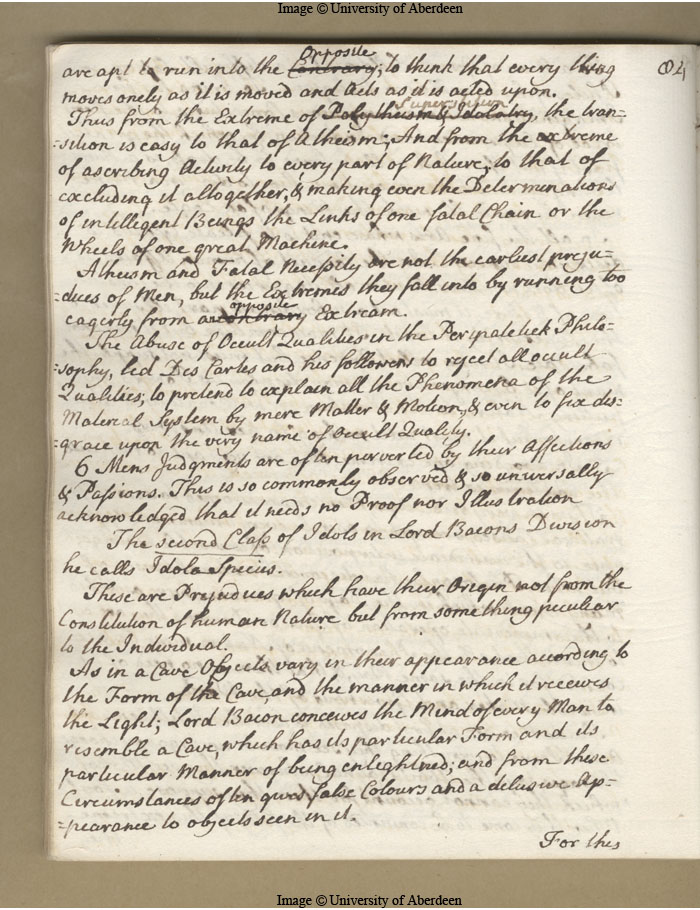 Image © University of Aberdeen
Opposite
are apt to run into the Contrary; to think that every thing
moves onely as it is moved and acts as it is acted upon.
Superstition
Thus from the Extreme of Polytheism & Idolatry, the tran-
-sition is easy to that of Atheism; And from the extreme
of ascribing Activity to every part of Nature, to that of
excluding it altogether, & making even the Determinations
of intelligent Beings the Links of one fatal Chain or the
Wheels of one great Machine.
Atheism and Fatal Necessity are not the earliest preju-
-dices of Men, but the Extremes they fall into by running too
opposite
eagerly from a contrary Extream.
The Abuse of Occult Qualities in the Peripatetick Philo-
-sophy, led Des Cartes and his followers to reject all occult
Qualities; to pretend to explain all the Phenomena of the
Material System by mere Matter & Motion, & even to fix dis-
-grace upon the very name of Occult Quality.
6 Mens Judgments are often perverted by their Affections
& Passions. This is so commonly observed & so universally
acknowledged that it needs no Proof nor Illustration
The second Class of Idols in Lord Bacons Division
he calls Idola Specus.
These are Prejudices which have their Origin not from the
Constitution of human Nature but from something peculiar
to the Individual.
As in a Cave Objects vary in their appearance according to
the Form of the Cave, and the manner in which it receives
the Light; Lord Bacon conceives the Mind of every Man to
resemble a Cave, which has its particular Form and its
particular Manner of being enlightned; and from these
Circumstances often gives false Colours and a delusive Ap-
-pearance to objects seen in it.
For this
Image © University of Aberdeen